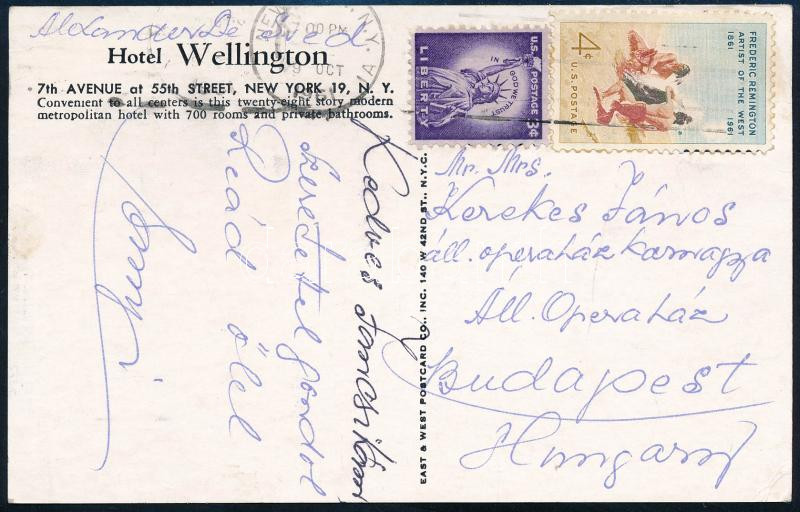 Alexander De Sved
Hotel Wellington
7th AVENUE at 55th STREET, NEW YORK 19, N. Y.
Convenient to all centers is this twenty-eight story modern
metropolitan hotel with 700 rooms and private bathrooms.
N.Y.
00 PM
9 OCT
U.S. POSTAGE 3¢
IN GOD WE TRUST
LIBERTY
4¢
U.S. POSTAGE
FREDERIC REMINGTON
ARTIST OF THE WEST
1861 1961
Kedves
Szeretettel gondol
Reád ölel
EAST & WEST POSTCARD CO., INC. 140 W 42ND ST., N.Y.C.
Mr. Mrs.
Kerekes János
áll. operaház karnagya
Áll. Operaház
Budapest
Hungary